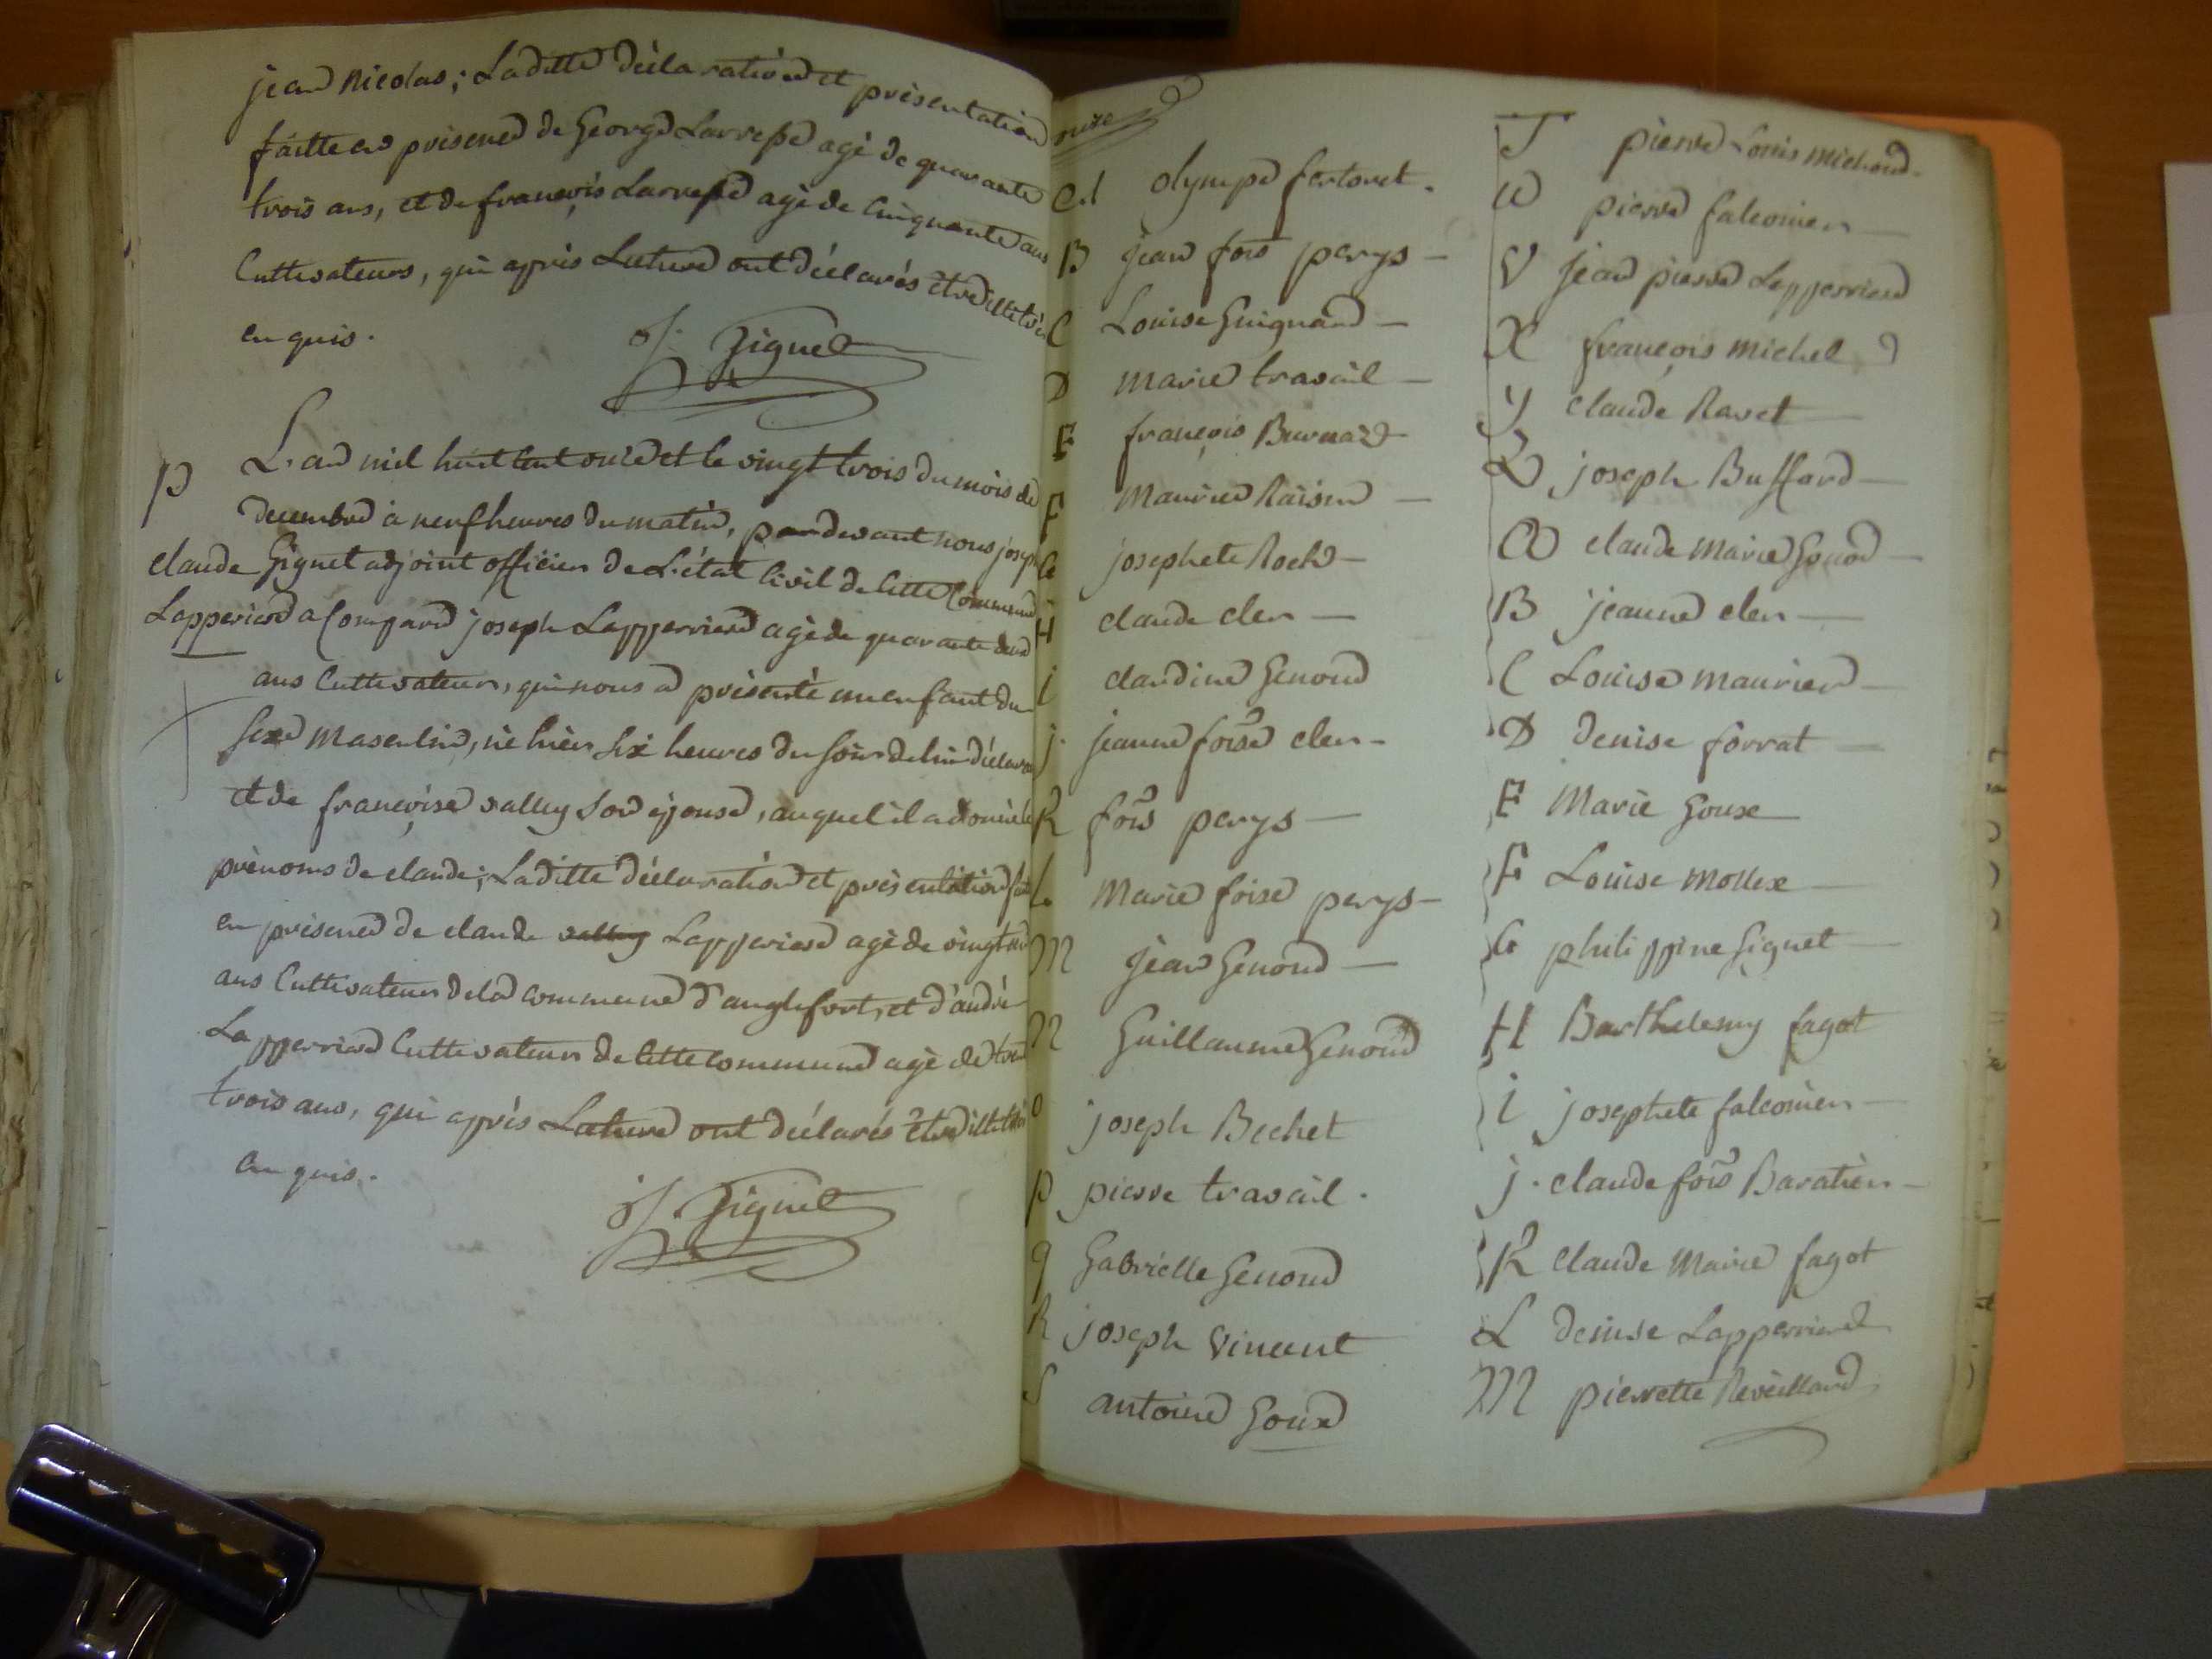 jean Nicolas; Laditte déclaration et présentation
faitte en présence de George Larresse agé de quarante
trois ans, et de françois Larresse agé de Cinquante ans
Cultivateurs, qui après Lecture ont déclarés être illetrés
en quis.
J. Gignet
p
L'an mil huit Cent onze et le vingt trois du mois de
decembre à neuf heures du matin, pardevant nous joseph
claude Gignet adjoint officier de L'état Civil de Cette Commune
Lapperiere a Comparu joseph Lapperriere agé de quarante deux
ans Cultivateur, qui nous a présenté un enfant du
sexe masculin, né hièr six heures du soir de lui déclarant
et de françoise valley son épouse, auquel il a donné le
prénoms de claude; Laditte déclaration et présentation
en présence de claude valley Lapperiere agé de vingt
ans Cultivateur de la commune d'anglefort, et d'andré
Lapperriere Cultivateur de Cette commune agé de
trois ans, qui après Lecture ont déclarés être illetrés
en quis.
J. Gignet
onze
A olympe fertoret.
B jean fois perys -
C Louise Guignard -
D marie travail -
E françois Burnard
F Maurice Raisin -
G josephete Roch -
H claude cler -
i claudine Genoud
j. jeanne foise cler -
K fois perys -
L Marie foise perys -
M jean Genoud -
N Guillaume Genoud
o joseph Bechet
p pierre travail.
q Gabrielle Genoud
R joseph Vincent
S antoine Goux
T pierre Louis michoud.
U pierre falconier -
V jean pierre Lapperriere
X françois michel
y claude Ravet -
Z joseph Buffard -
A claude marie Gonod -
B jeanne cler -
C Louise maurier -
D denise forrat -
E Marie Goux
F Louise mollex -
G philippine Gignet -
H Barthelemy fagot
i josephete falconier -
j. claude fois Baratier -
K claude Marie fagot
L denise Lapperriere
M pierrette Reveillard